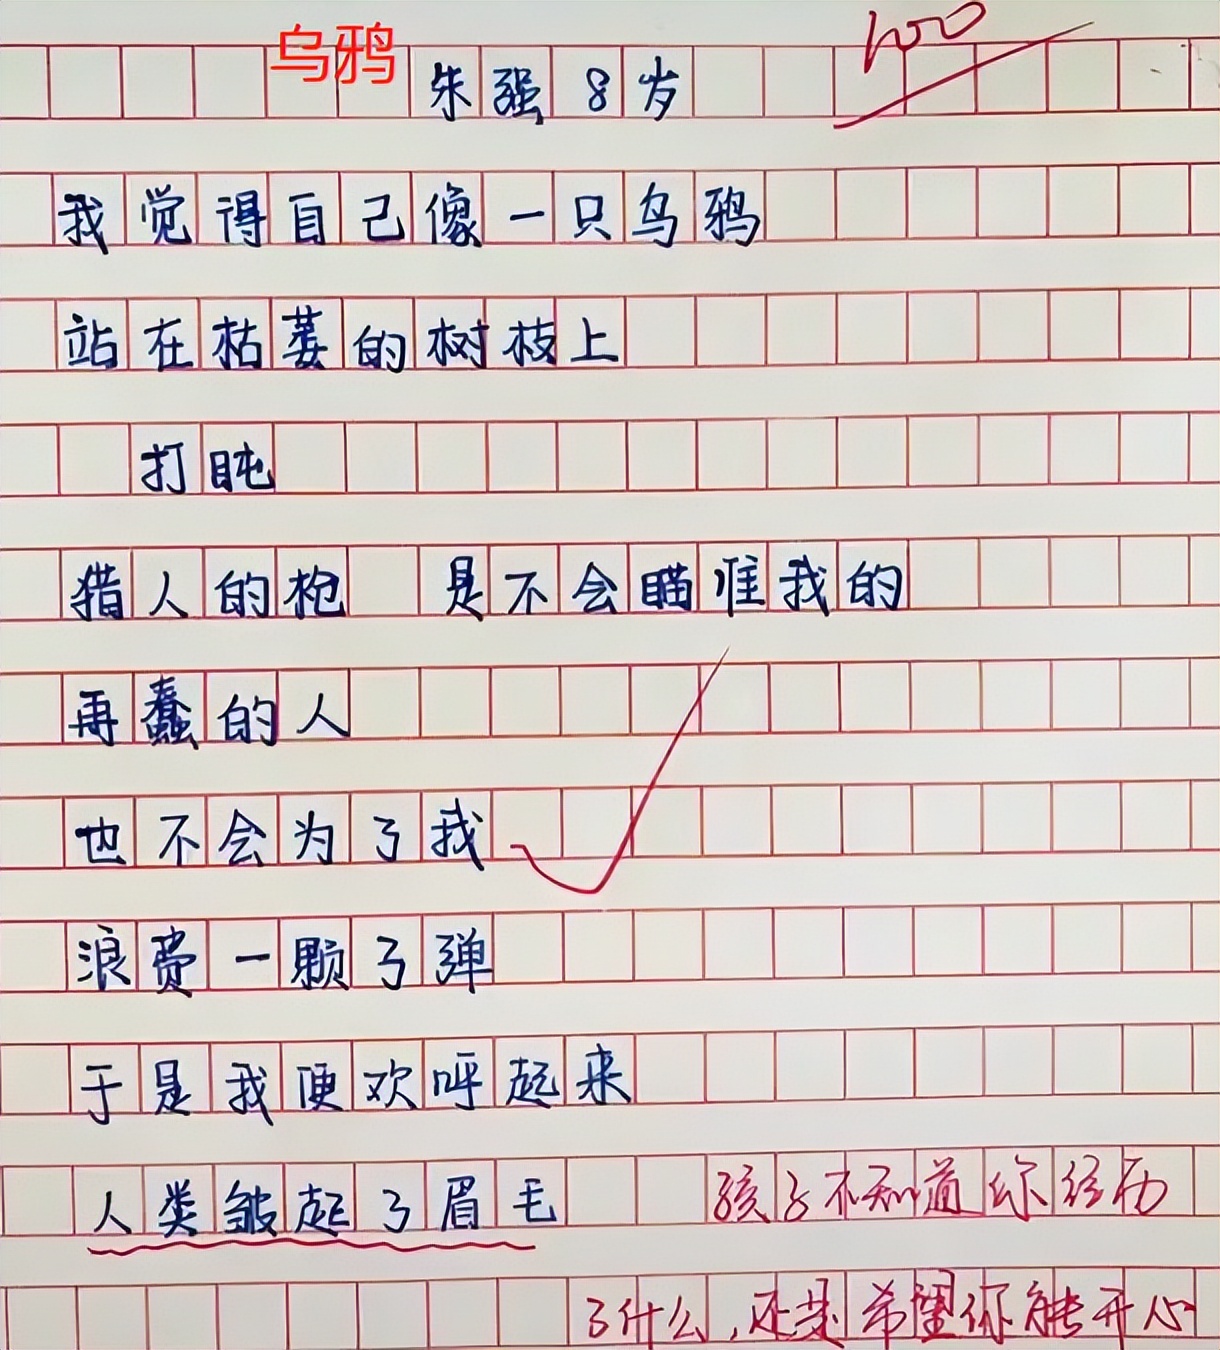 乌鸦
朱强 8岁
100
我觉得自己像一只乌鸦
站在枯萎的树枝上
打盹
猎人的枪 是不会瞄准我的
再蠢的人
也不会为了我
浪费一颗子弹
于是我便欢呼起来
人类皱起了眉毛
孩子不知道你经历
了什么,还是希望你能开心